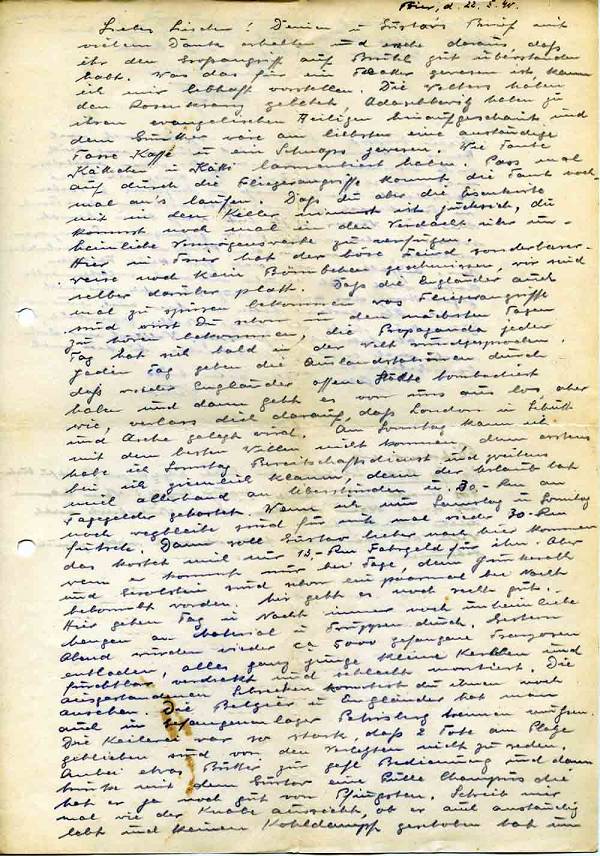 Trier, d. 22. 5. 40.
Liebes Lieschen! Deinen u Gustavs Brief mit
vielem Dank erhalten und ersehe daraus, daß
ihr den Großangriff auf Brühl gut überstanden
habt. Was das für ein gewesen ist, kann
ich mir lebhaft vorstellen. Die haben
den Rosenkranz gebetet, haben zu
ihren evangelischen Heiligen hinaufgeschaut und
dem Günther wäre am liebsten eine anständige
Tasse Kaffe u ein Schnaps gewesen. Wie Tante
Käthchen u Käthi lamentiert haben. Pass mal
auf durch die Fliegerangriffe kommt die Tante noch
mal an's laufen. Daß du aber die
mit in den Keller nimmst ist, du
kommst noch mal in den Verdacht über un-
heimliche Vermögenswerte zu verfügen.
Hier in Trier hat der böse Feind sonderbarer-
weise noch kein geschmissen, wir sind
selber darüber platt. Daß die Engländer auch
mal zu spüren bekommen was Fliegerangriffe
sind wirst Du schon in den nächsten Tagen
zu hören bekommen, die Propaganda jeder
Tag hat sich bald in der Welt rundgesprochen.
Jeden Tag geben die Auslandstationen durch
daß wieder Engländer offene Städte bombadiert
haben und dann geht es von uns aus los, aber
wie, verlass dich darauf, daß London in Schutt
und Asche gelegt wird. Am Sonntag kann ich
mit dem besten Willen nicht kommen, denn erstens
habe ich Sonntag Bereitschaftsdienst und zweitens
bin ich ziemlich klamm, denn der Urlaub hat
mich allerhand an Überstunden u. 30,- Rm an
Tagegelder gekostet. Wenn ich nun Samstag u Sonntag
noch wegbleibe sind für mich mal wieder 30 Rm
futsch. Dann soll Gustav lieber nach hier kommen
das kostet mich nur 13,- Rm Fahrgeld für ihn. Aber
wenn er kommt nur bei Tage, denn
und Gerolstein sind schon ein paarmal bei Nacht
bebombt worden. Mir geht es noch recht gut.
Hier gehen Tag u Nacht immer noch unheimliche
Mengen an Material u Truppen durch. Gestern
Abend wurden wieder ca 5000 gefangene Franzosen
entladen, alles ganz junge Kerlchen und
furchtbar verdreckt und schlecht montiert. Die
ausgestandenen Schrecken konntest du ihnen noch
ansehen. Die Belgier u Engländer hat man
auch im Gefangenenlager Petrisberg trennen müssen.
Die Keilerei war so stark, daß 2 Tote am Platze
geblieben sind von den Verletzten nicht zu reden.
Anbei etwas Butter zur gefl Bedienung und dann
mit dem Gustav eine Pulle Champus die
hat er ja noch gut von Pfingsten. Schreib mir
mal wie der Knabe aussieht, ob er auch anständig
lebt und keinen Kohldampf geschoben hat im